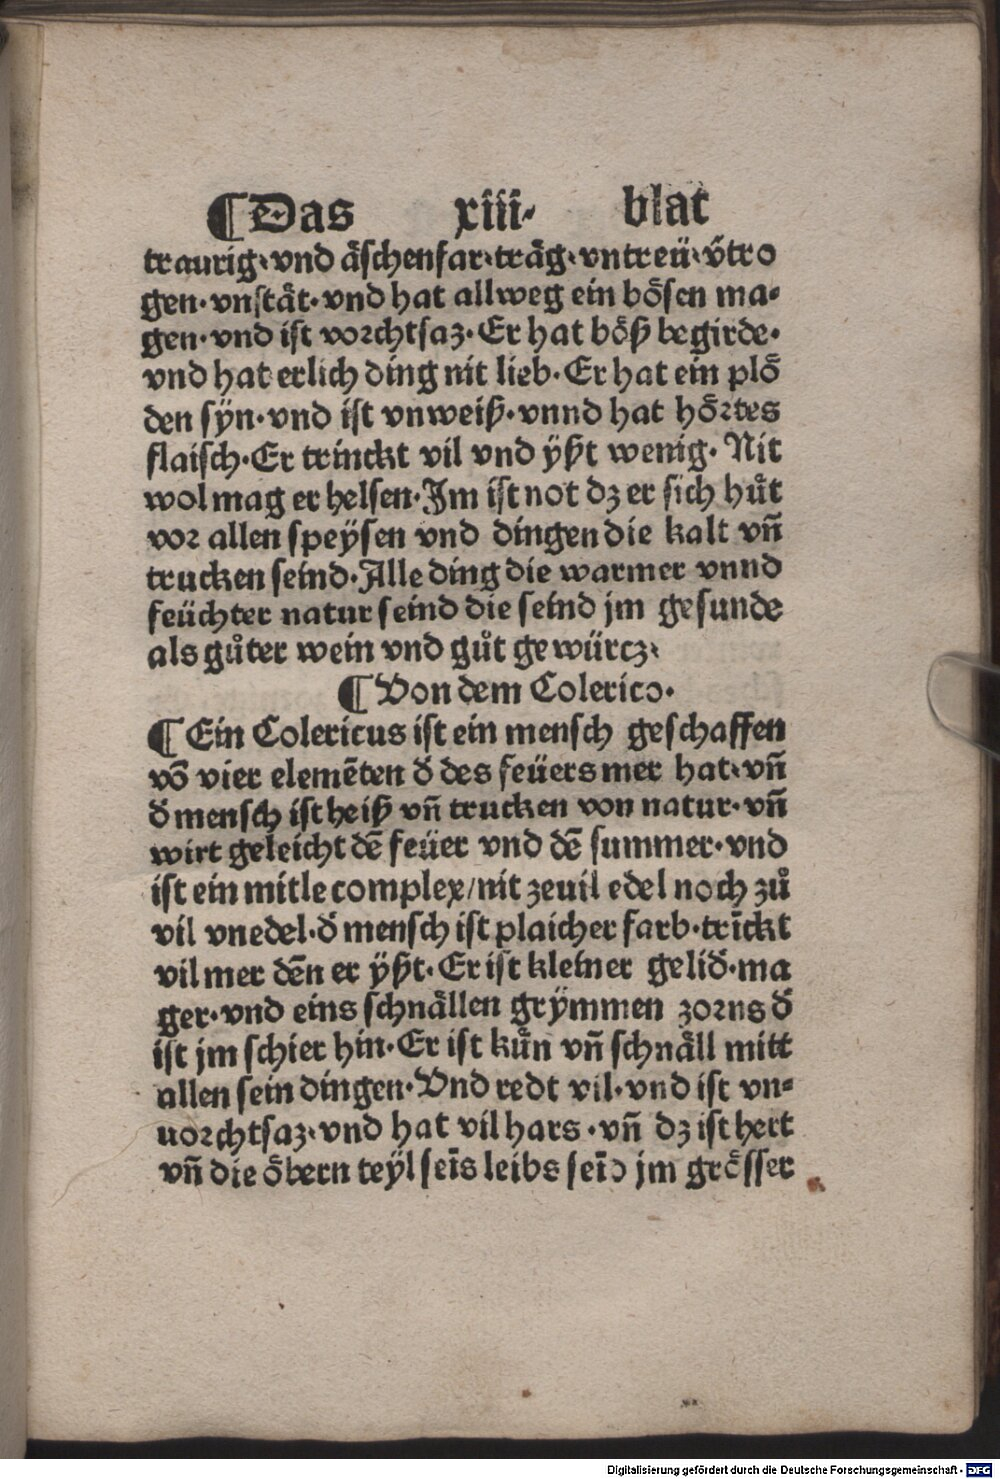 ¶ Das xiii· blat
traurig·vnd äschenfar·träg·vntreü·v̄tro
gen·vnstät·vnd hat allweg ein bösen ma⸗
gen·vnd ist vorchtsaz·Er hat böß begirde·
vnd hat erlich ding nit lieb·Er hat ein plö
den sÿn·vnd ist vnweiß·vnnd hat hörtes
flaisch·Er trinckt vil vnd ÿßt wenig·Nit
wol mag er helsen·Im ist not dz er sich hůt
vor allen speÿsen vnd dingen die kalt vn̄
trucken seind·Alle ding die warmer vnnd
feüchter natur seind die seind jm gesunde
als gůter wein vnd gůt gewürcz·
¶ Von dem Colerico·
¶ Ein Colericus ist ein mensch geschaffen
vō vier elemēten d̄ des feüers mer hat·vn̄
d̄ mensch ist heiß vn̄ trucken von natur·vn̄
wirt geleicht dē feüer vnd dē summer·vnd
ist ein mitle complex/nit zeuil edel noch zů
vil vnedel·d̄ mensch ist plaicher farb·trīckt
vil mer dēn er ÿßt·Er ist kleiner gelid̄·ma
ger·vnd eins schnällen grÿmmen zorns d̄
ist jm schier hin·Er ist kůn vn̄ schnäll mitt
allen sein dingen·Vnd redt vil·vnd ist vn⸗
uorchtsaz·vnd hat vil hars·vn̄ dz ist hert
vn̄ die öbern teÿl seīs leibs seīd jm grösser
Digitalisierung gefördert durch die Deutsche Forschungsgemeinschaft - DFG